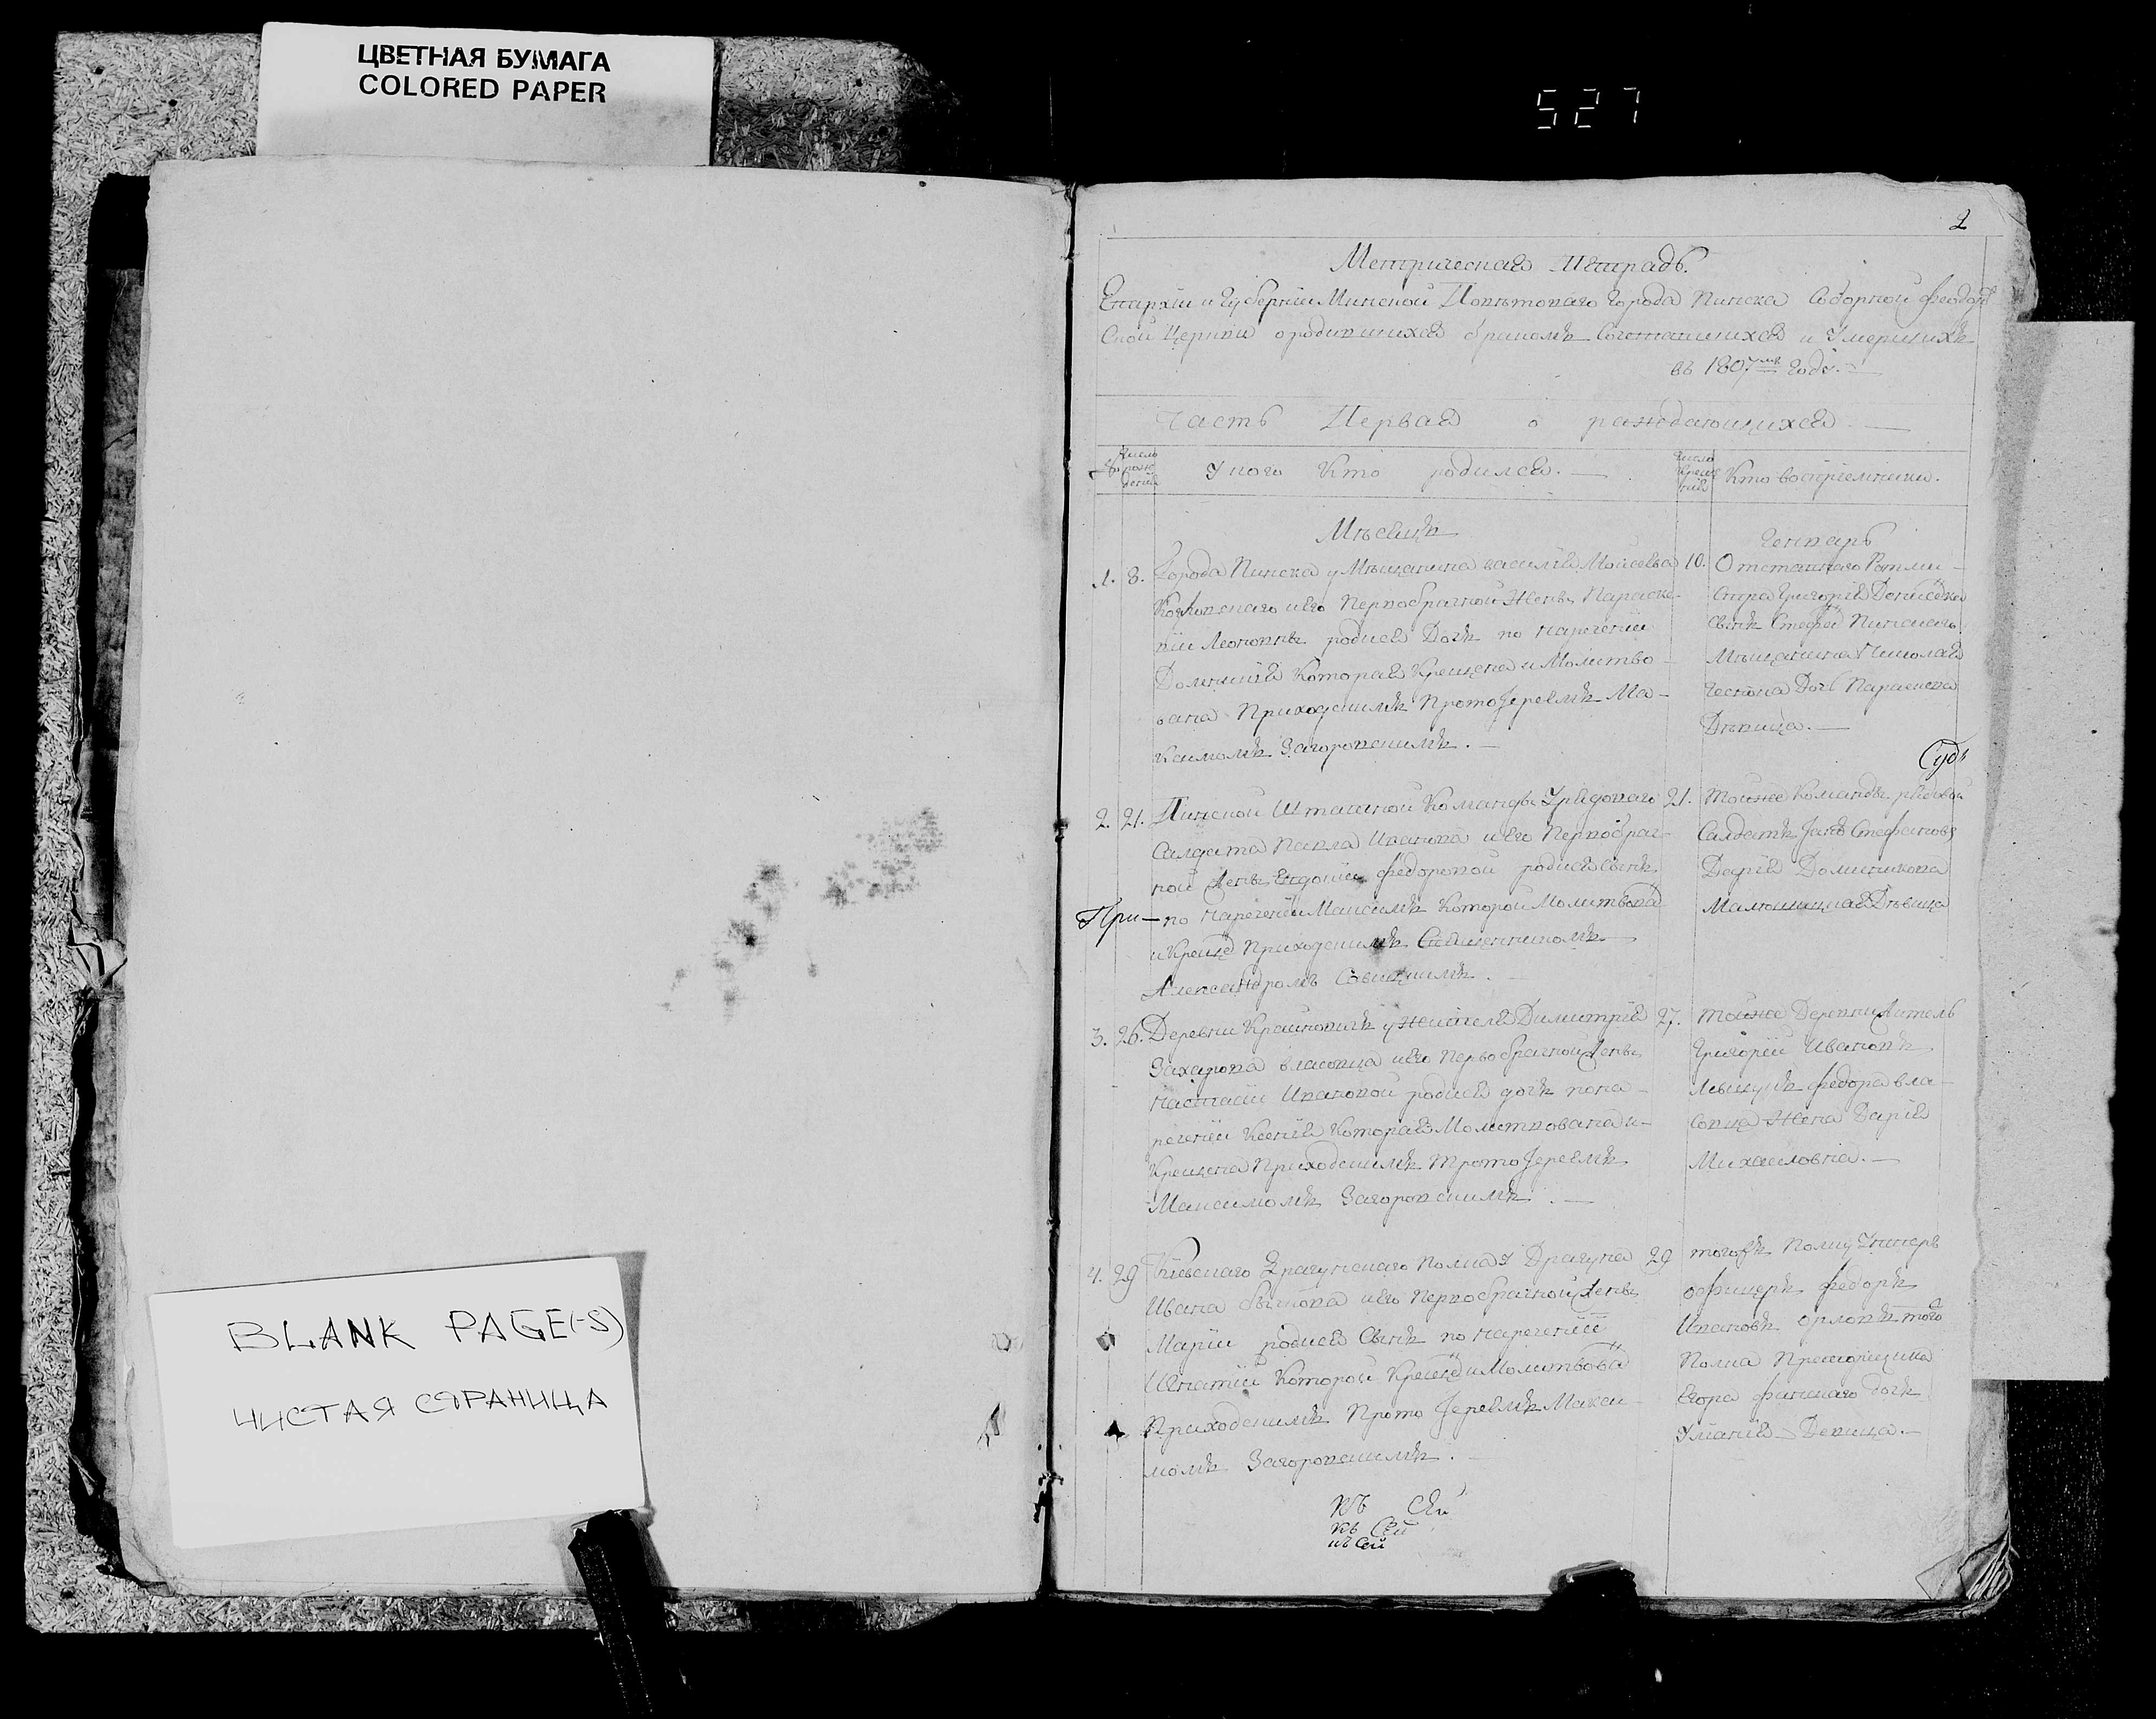 ЦВЕТНАЯ БУМАГА
COLORED PAPER
527
2
Метрическая Тетрадь.
Епархіи и Губерніи Минской Повѣтоваго города Пинска Соборной Феодоров
ской Церкви о родившихся бракомъ Сочетавшихся и Умершихъ
въ 1807мъ годѣ.
Часть Первая о раждающихся
Число рожденій
У кого Кто родился.
Число Крещенія
Кто восприемники.
Мѣсяцъ
Генварь
1. 8. Города Пинска у Мѣщанина василія Мойсеева
его Первобрачной Жены Параске-
віи Леоновны родися Дочъ по нареченіи
Домникія Которая Крещена и Молитво-
вана Приходскимъ ПротоІереемъ Ма-
ксимомъ Загоровскимъ.
10. Отставнаго Ротми-
стра Григорія Денисова
Сынъ Стефан Пинскаго
Мѣщанина Николая
Дочь Параскева
Дѣвица.
Судъ
2. 21. Пинской Штатной Команды Урядоваго
Салдата Павла Иванова и его Первобрач-
ной Жены Евдокіи Федоровой родися Сынъ
При- по нареченіи Максимъ Которой Молитвова
и Креще Приходскимъ Священникомъ
Александромъ Савицкимъ.
21. Тойже Команды рядовой
Салдатъ Яковъ Стефановъ
Дарія Доминикова
Дѣвица
3. 26. Деревни Крайновичъ у Жителя Димитрія
Захарова власовца и его Первобрачной Жены
Настасіи Ивановой родися дочъ пона-
реченіи Ксенія Которая Молитвована и
Крещена Приходскимъ ПротоІереемъ
Максимомъ Загоровскимъ.
27. Тойже Деревни Житель
Григорій Ивановъ
Федора вла-
совца Жена Дарія
Михайловна.
4. 29 Кіевскаго Драгунскаго Полка У Драгуна
Ивана и его Первобрачной Жены
Маріи родися Сынъ по нареченіи
Игнатій Которой Креще и Молитвова
Приходскимъ Прото Іереемъ Макси-
момъ Загоровскимъ.
29 тогожъ Полку Унтеръ
офицеръ Федоръ
Ивановъ Орловъ того
Полка
Егора дочъ
Уліанія Девица.
къ Сей
къ Сей
къ Сей
BLANK PAGE(-S)
ЧИСТАЯ СТРАНИЦА